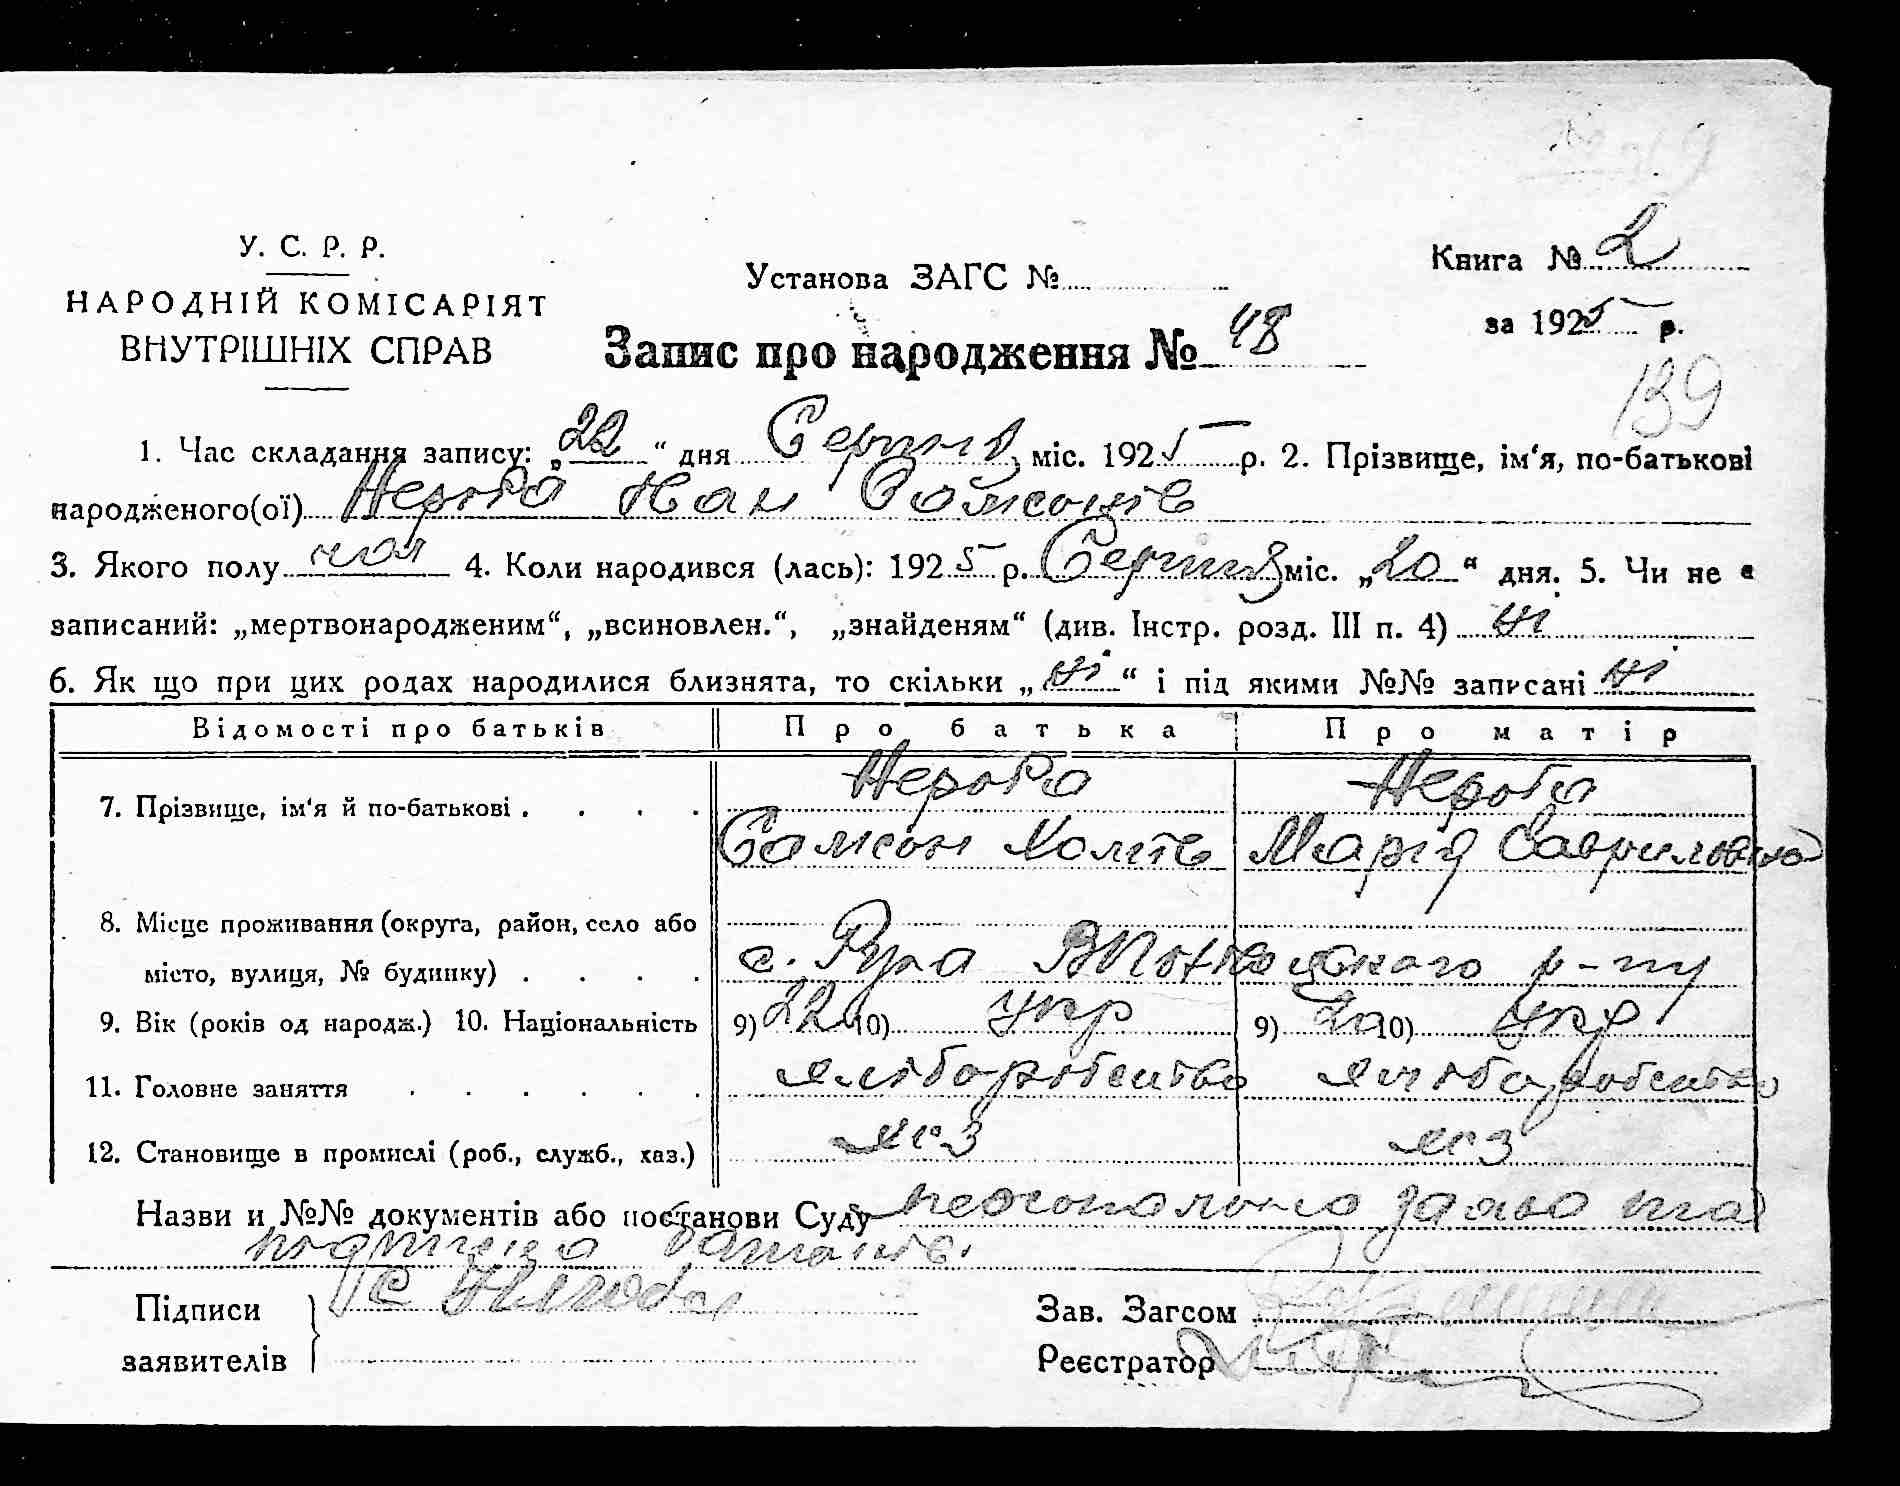 У. С. Р. Р.
НАРОДНІЙ КОМІСАРІЯТ
ВНУТРІШНІХ СПРАВ
Установа ЗАГС №
Книга № 2
за 1925 р.
Запис про народження № 48
139
1. Час складання запису: „22“ дня Серпня міс. 1925 р. 2. Прізвище, ім‘я, по-батькові
народженого(ої) Нероба Іван Самсонів
3. Якого полу чол 4. Коли народився (лась): 1925 р. Серпня міс. „20“ дня. 5. Чи не є
записаний: „мертвонародженим“, „всиновлен.“, „знайденям“ (див. Інстр. розд. III п. 4) ні
6. Як що при цих родах народилися близнята, то скільки „ні“ і під якими №№ записані ні
Відомості про батьків Про батька Про матір
7. Прізвище, ім‘я й по-батькові . . . . Нероба Нероба
Самсон Марія Гаврилівна
8. Місце проживання (округа, район, село або
місто, вулиця, № будинку) . . . . с. Рура р-ну
9. Вік (років од народж.) 10. Національність 9) 22 10) Укр 9) 20 10) Укр
11. Головне заняття . . . . . . хліборобство хліборобство
12. Становище в промислі (роб., служб., хаз.)
Назви и №№ документів або постанови Суду персональна заява та
підписка батьків.
Підписи
заявителів
С Нероба
Зав. Загсом
Реєстратор